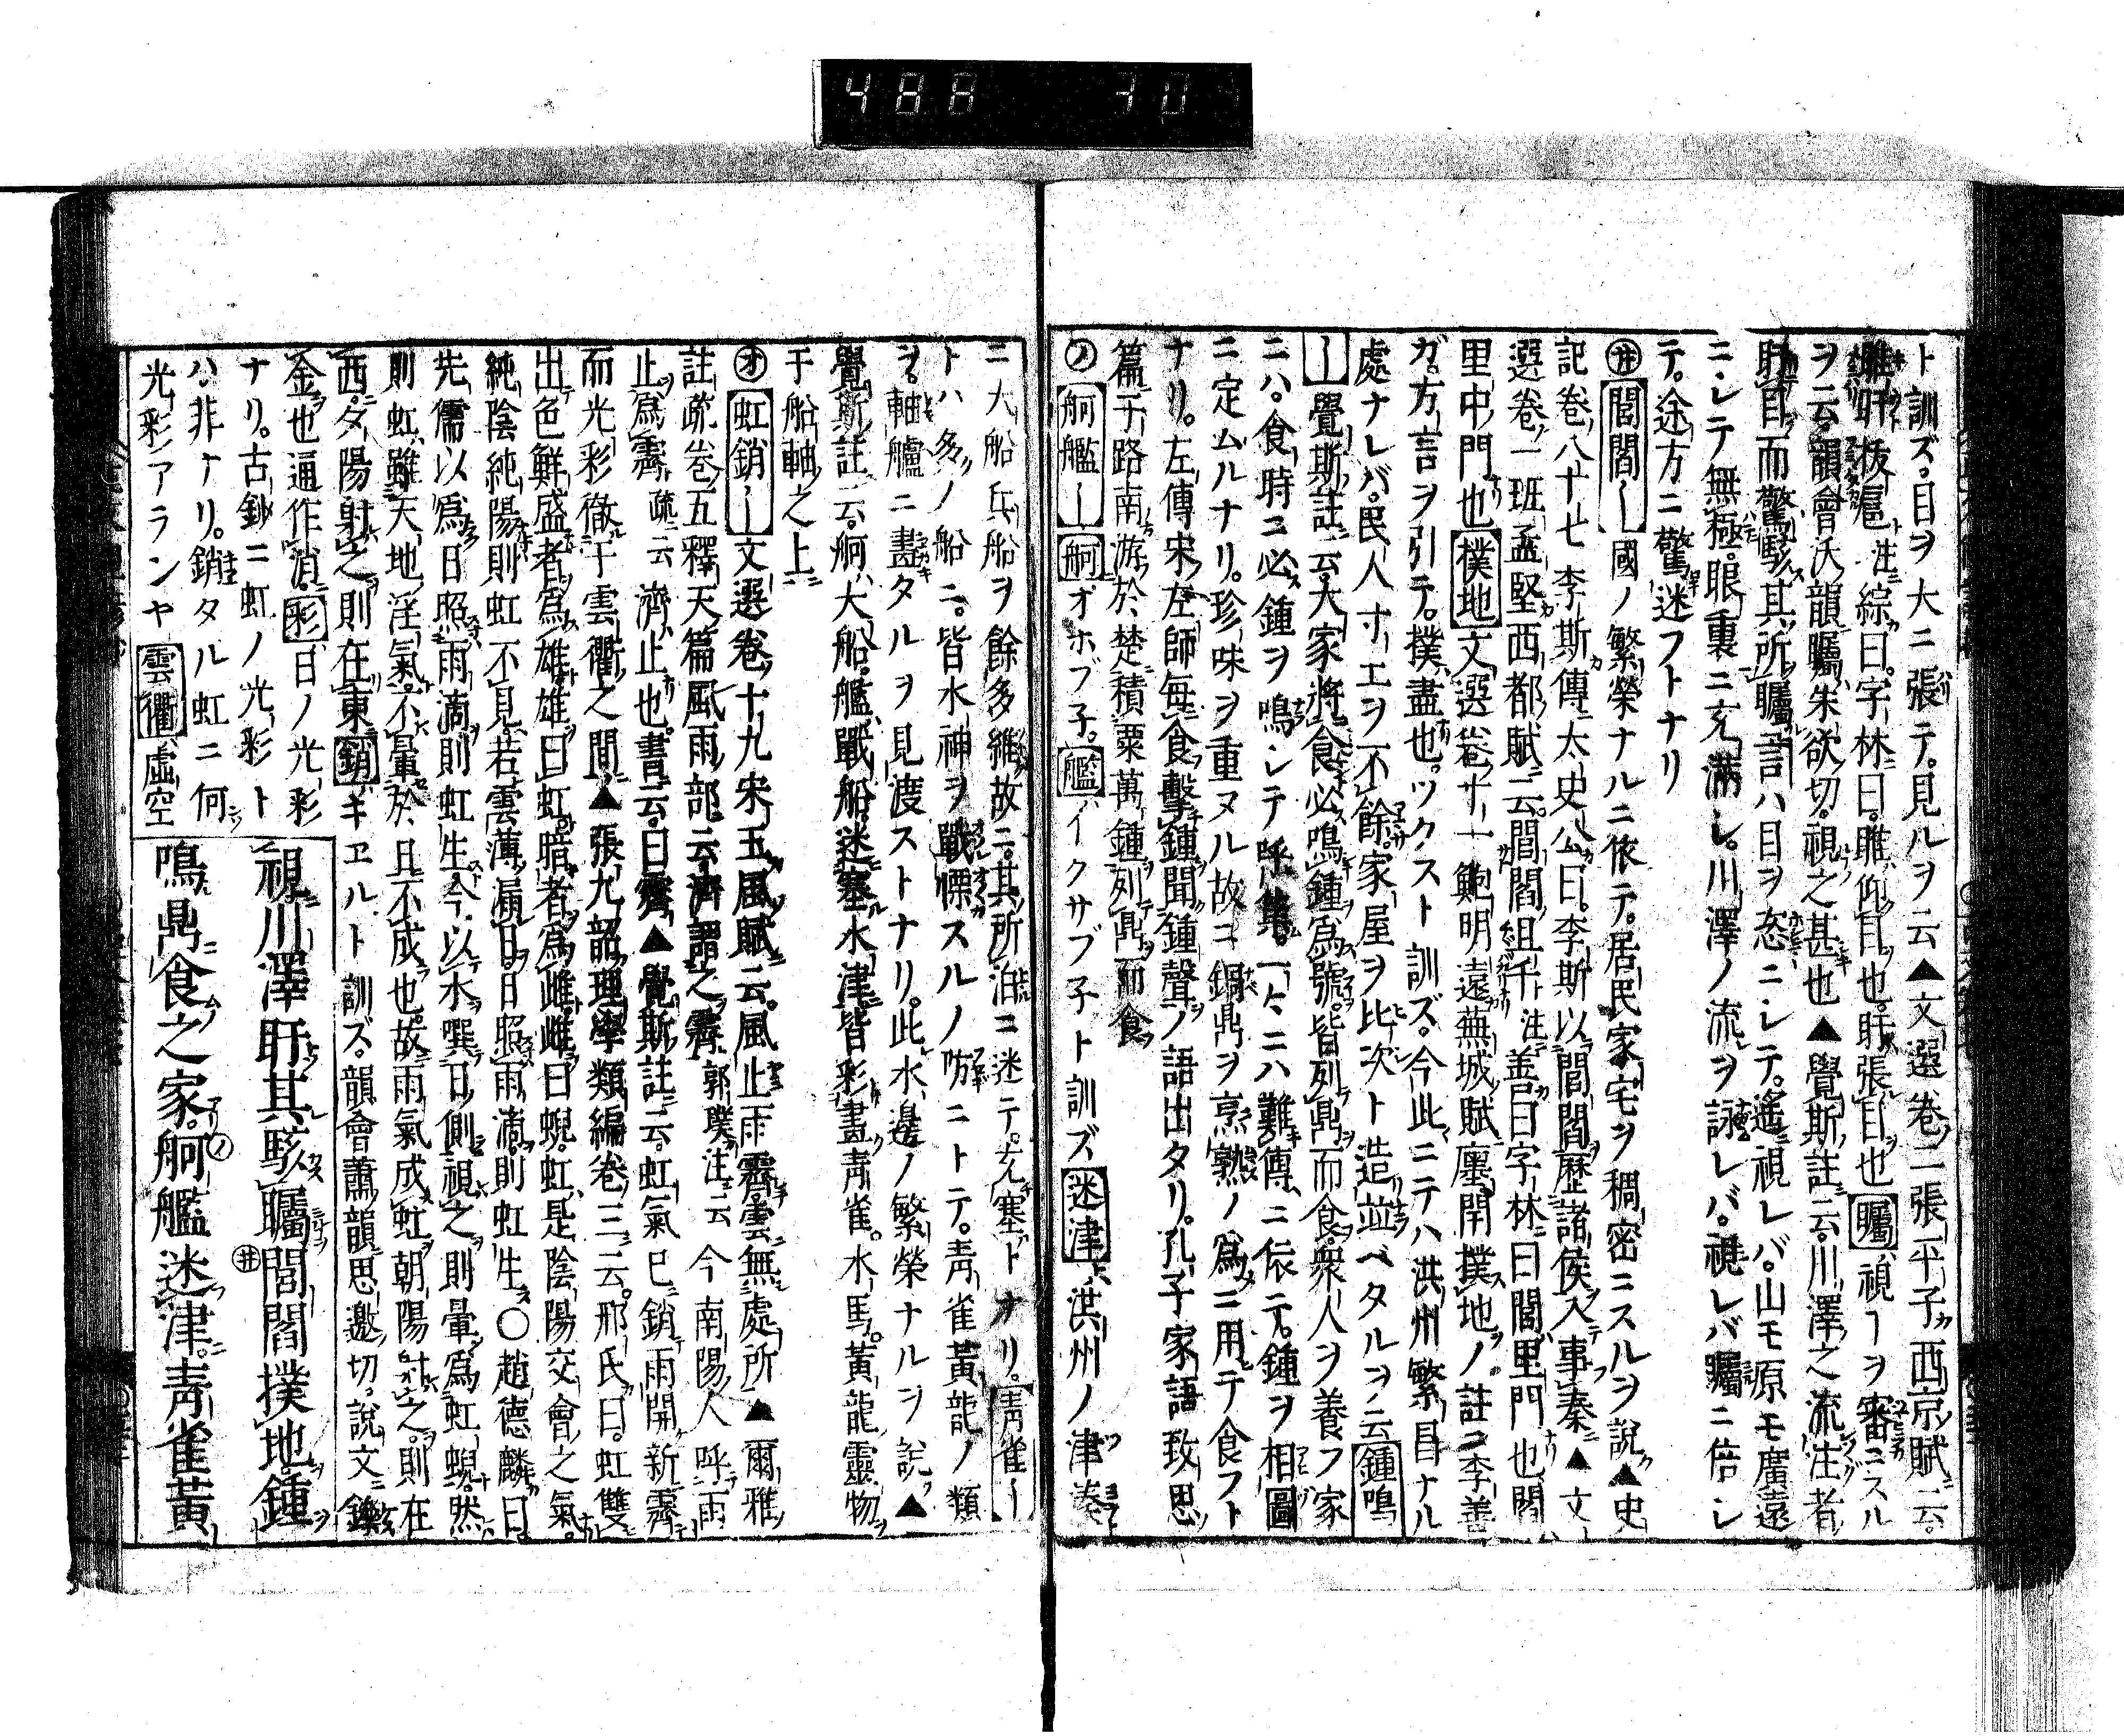 488 30
ト訓ズ。目ヲ大ニ張テ。見ルヲ云▲文選卷二張平子西京賦云。
睢盱拔扈注綜曰。字林曰。睢仰目也。盱張目也矚視ヿヲ審ニスル
ヲ云。韻會沃韻矚朱欲切。視之甚也▲覺斯註云。川澤之流注者
盱目而驚駭其所矚言ハ目ヲ恣ニシテ。遙視レバ。山モ原モ廣遠
ニシテ無極。眼裏ニ充滿シ。川澤ノ流ヲ詠レバ。視レバ矚ニ倍シ
テ。途方ニ驚迷フトナリ
㋼閭閻〡國ノ繁榮ナルニ依テ。居民家宅ヲ稠密ニスルヲ説▲史
記卷八十七李斯傳太史公曰。李斯以閭閻歷諸侯入事秦▲文
選卷一班孟堅西都賦云。閭閻且千注善曰字林曰閭里門也閻
里中門也撲地文選卷十一鮑明遠蕪城賦廛閈撲地ノ註ニ李善
ガ。方言ヲ引テ。撲盡也。ツクスト訓ズ。今此ニテハ洪州繁昌ナル
處ナレバ。民人寸工ヲ不餘。家屋ヲ比次ト造並ベタルヲ云鍾鳴
〡覺斯註云。大家將食必鳴鍾爲號。皆列鼎而食。衆人ヲ養フ家
ニハ。食時ニ必鍾ヲ鳴シテ呼集。一々ニハ難傳ニ依テ。鍾ヲ相圖
ニ定ムルナリ。珍味ヲ重ヌル故ニ銅鼎ヲ烹熟ノ爲ニ用テ食フト
ナリ。左傳宋左師每食擊鍾聞鍾聲ノ語出タリ。孔子家語致思
篇子路南游於楚積粟萬鍾列鼎而食
㋨舸艦〡舸オホブ子。艦イクサブ子ト訓ズ迷津洪州ノ津湊
ニ大船兵船ヲ餘多維故ニ。其所泊ニ迷テ。充塞トナリ。青雀〡
トハ多ノ船ニ。皆水神ヲ戰慄スルノ防ニトテ。青雀黃龍ノ類
ヲ。軸艫ニ畫タルヲ見渡ストナリ。此水邊ノ繁榮ナルヲ説▲
覺斯註云。舸大船。艦戰船。迷塞水津。皆彩畫青雀。水馬。黃龍靈物
于船軸之上
㋔虹銷〡文選卷十九宋玉風賦云。風止雨霽雲無處所▲爾雅
註疏卷五釋天篇風雨部云濟謂之霽郭璞注云今南陽人呼雨
止爲霽疏云濟止也。書云。曰霽▲覺斯註云。虹氣已銷雨開新霽
而光彩徹于雲衢之間▲張九韶理學類編卷三云。邢氏曰。虹雙
出色鮮盛者爲雄雄曰虹暗者爲雌雌曰蜺。虹是陰陽交會之氣。
純陰純陽則虹不見若雲薄漏日。日照雨滴則虹生○趙德麟曰
先儒以爲日照雨滴則虹生今以水噀日側視之則暈爲虹蜺。然
則虹雖天地淫氣不暈於日不成也。故雨氣成虹朝陽射之。則在
西。夕陽射之則在東銷キエルト訓ズ。韻會蕭韻思邀切。説文鑠
金也通作消。彩日ノ光彩
ナリ。古鈔ニ虹ノ光彩ト
ハ非ナリ。銷タル虹ニ何
光彩アランヤ雲衢虛空
視川澤盱其駭矚㋼閭閻撲地。鍾
鳴鼎食之家。㋨舸艦迷津。青雀黃